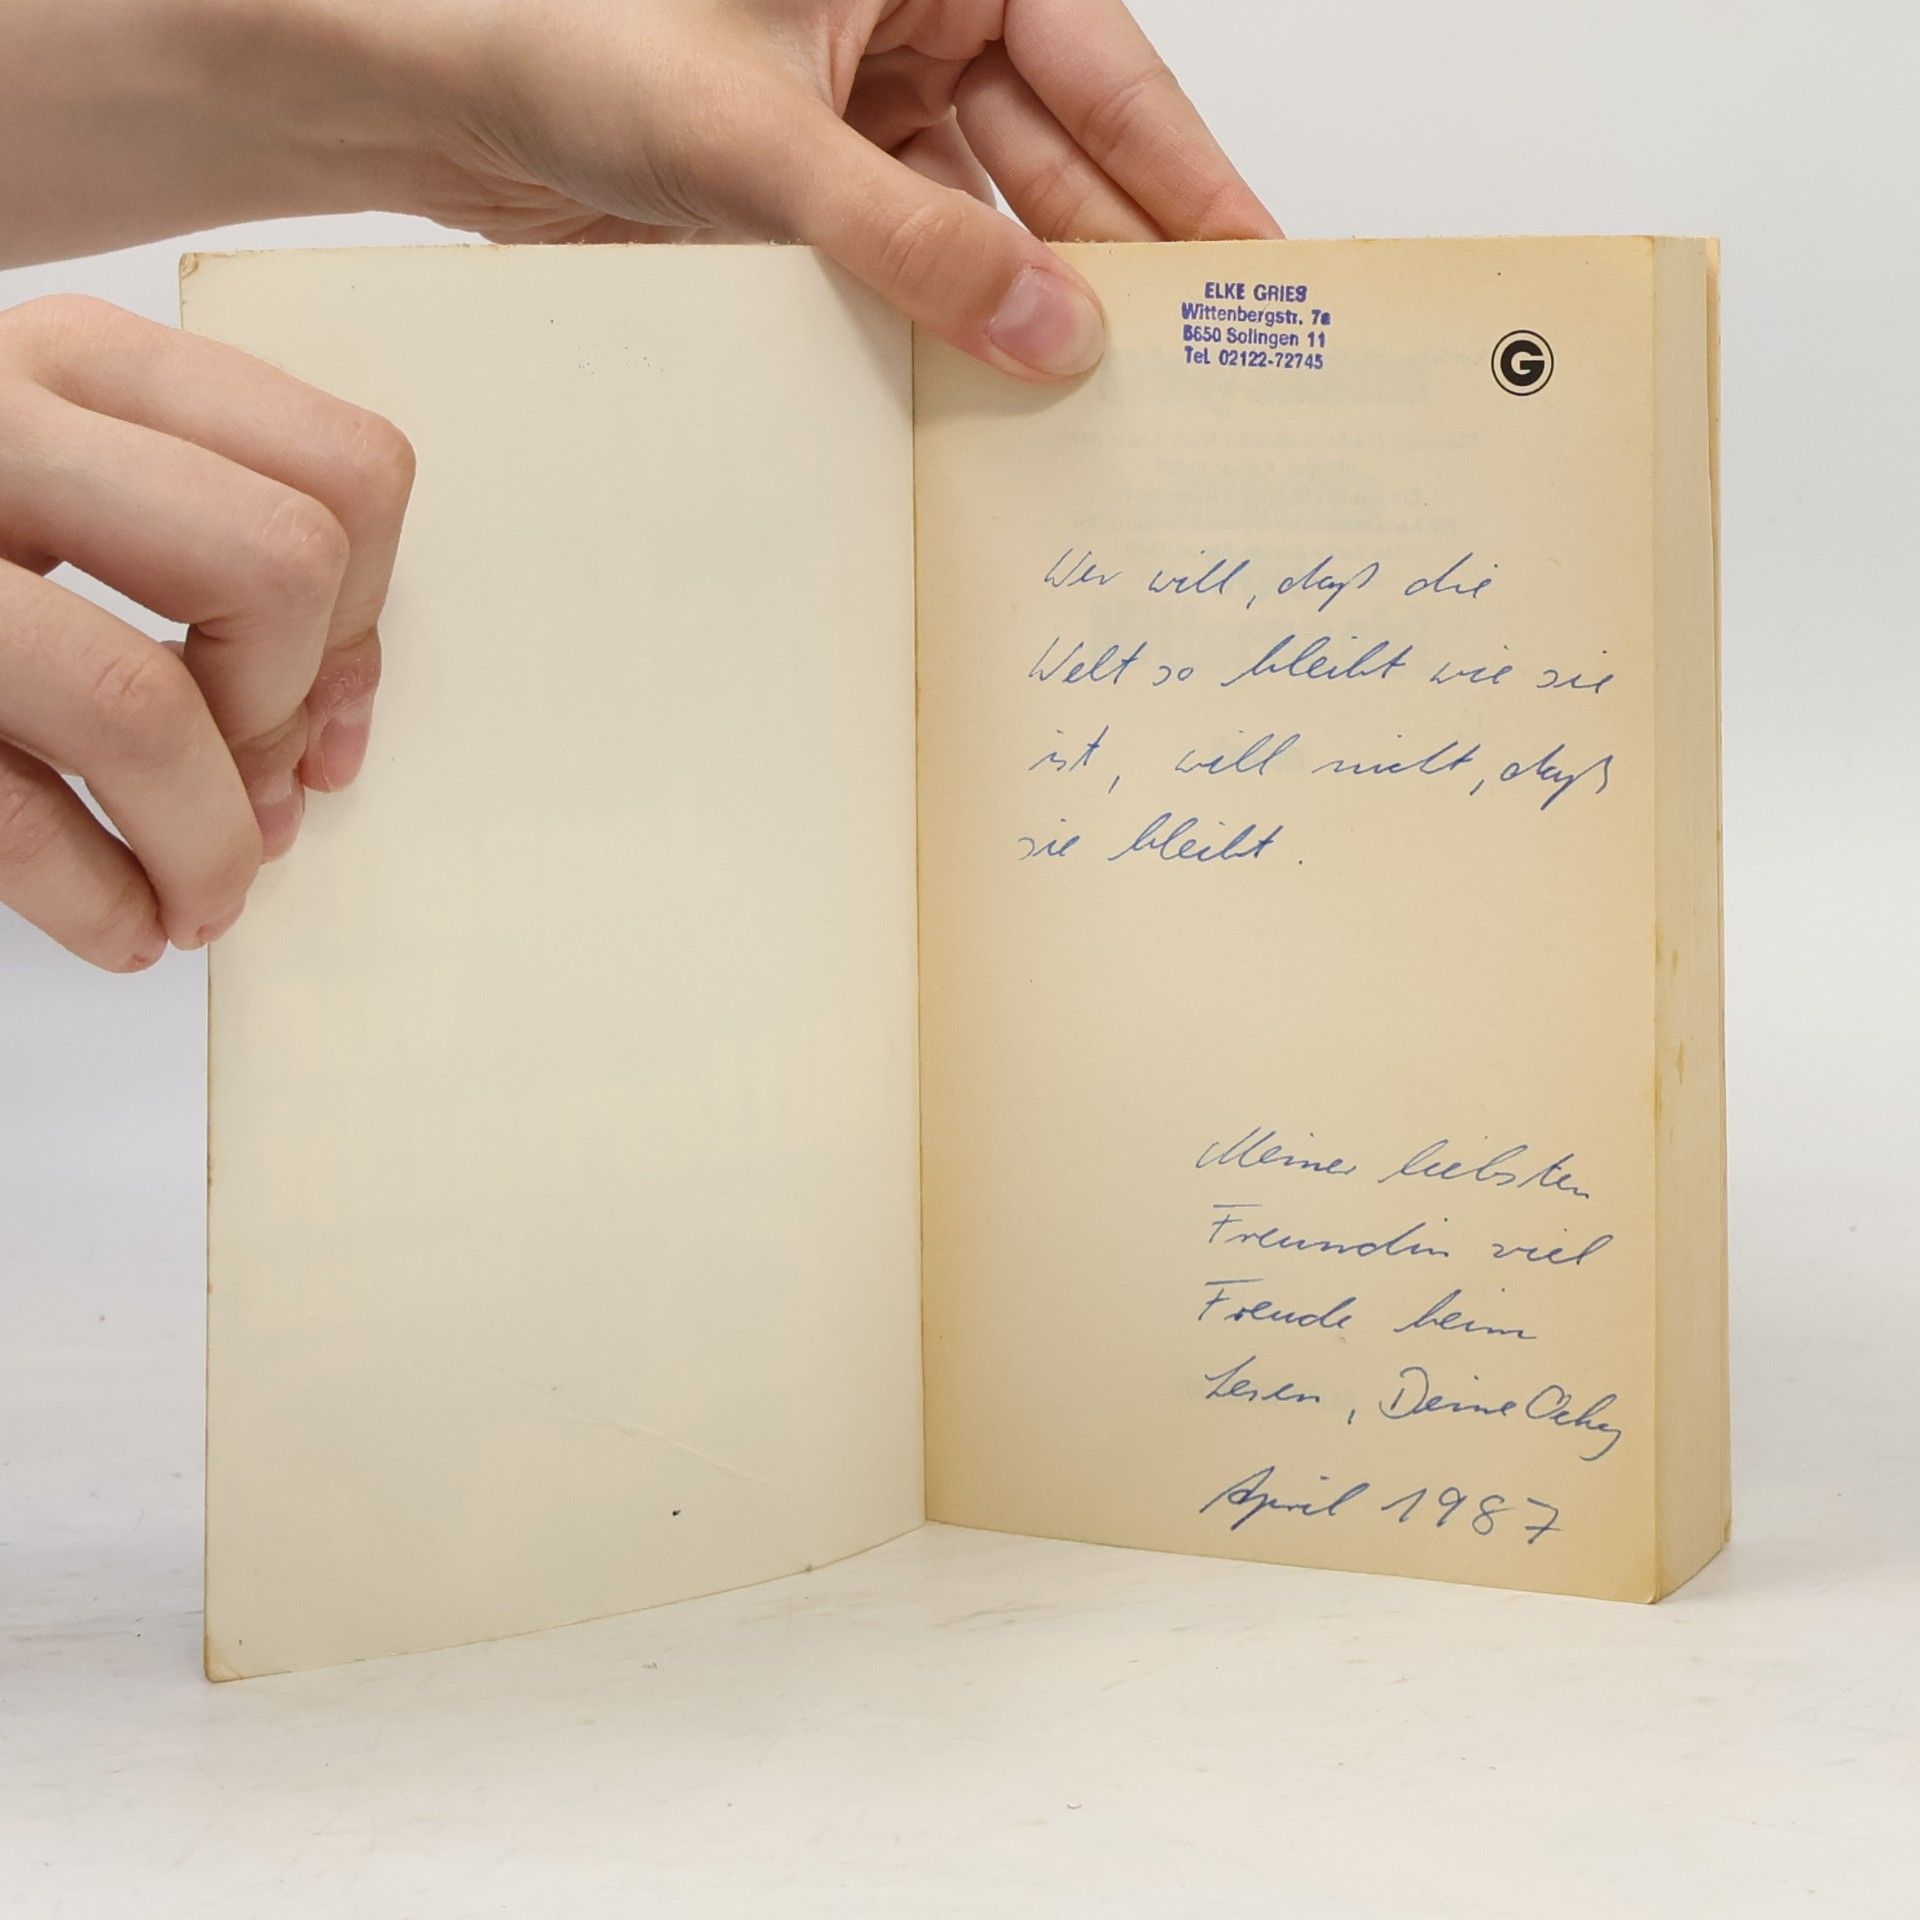 ELKE GRIES
Wittenbergstr. 7a
5650 Solingen 11
Tel. 02122-72745
G
Wer will, daß die
Welt so bleibt wie sie
ist, will nicht, daß
sie bleibt.
Meiner liebsten
Freundin viel
Freude beim
Lesen, Deine
April 1987